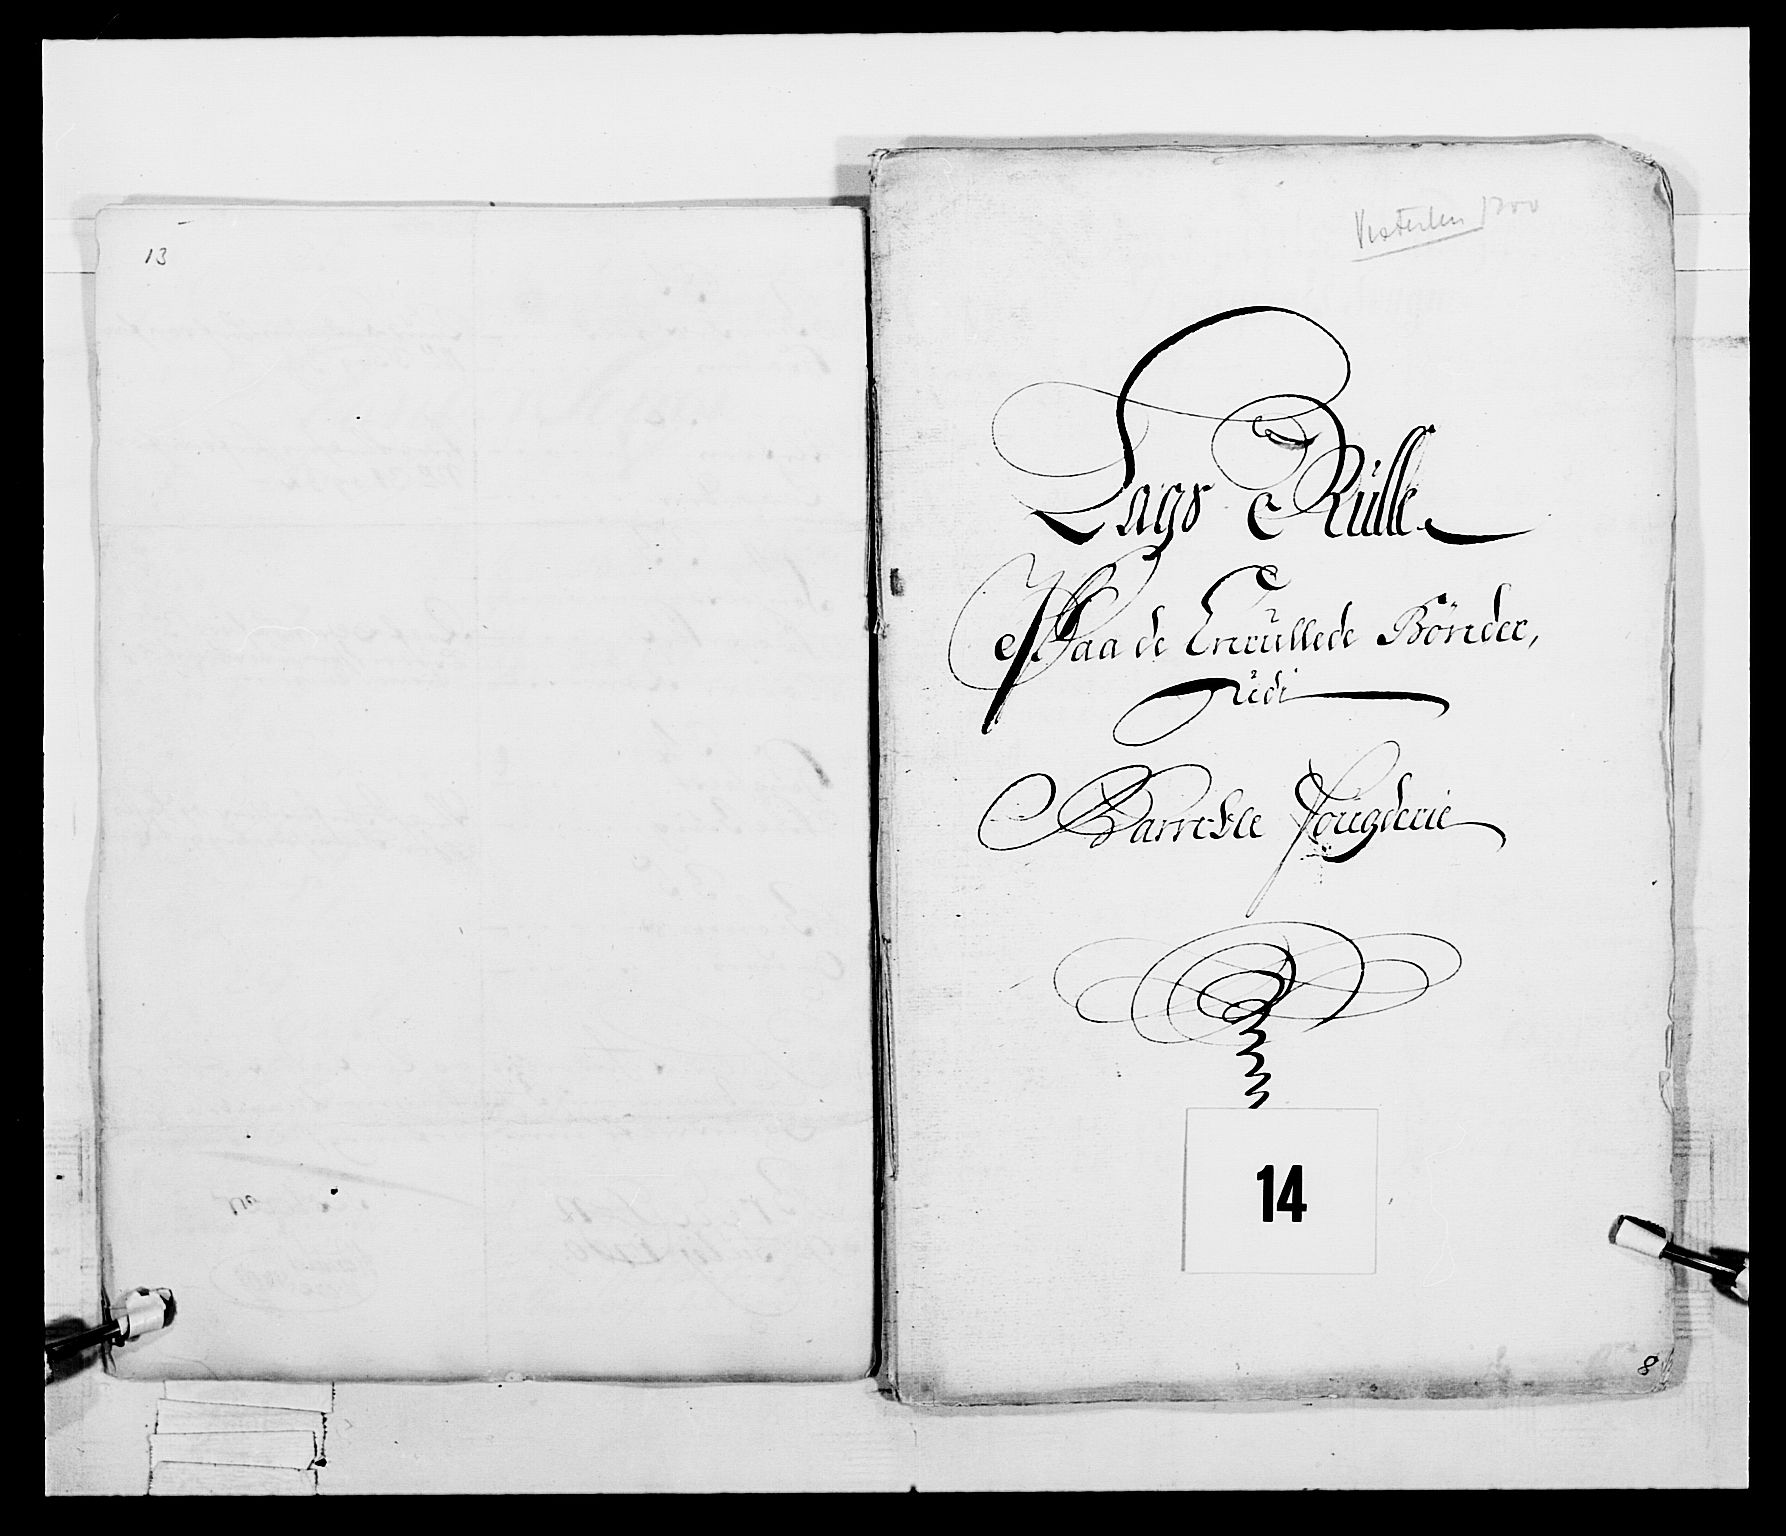 13
Vesterlen 1700
Lægs Rülle
Paa de Enrüllede Bönder,
üdi
Barreble Fougderie
14
8